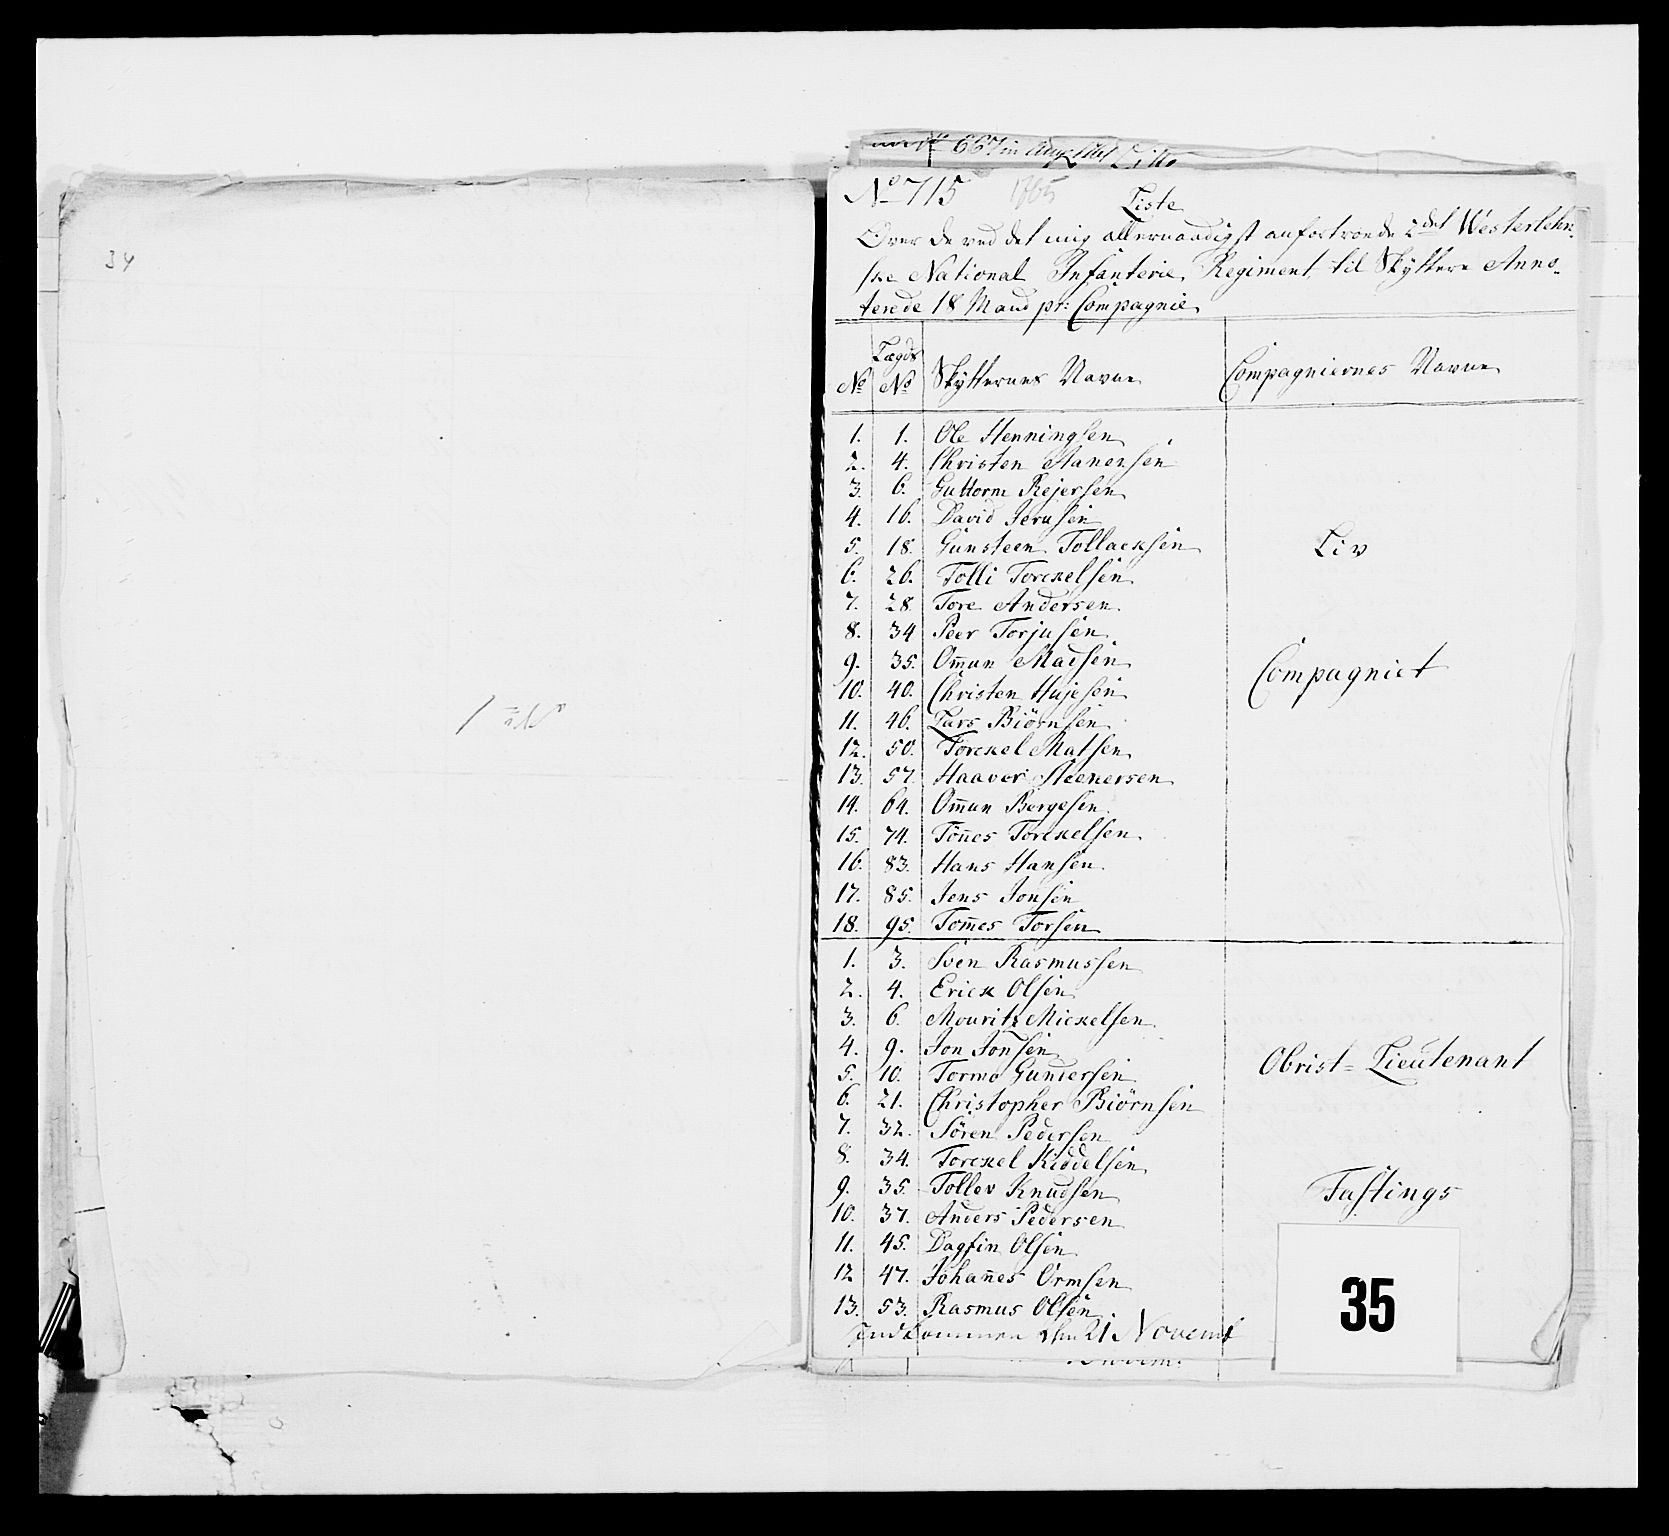 34
No 1
No 667 in Aug
No 715 1765
Liste
Over de ved det mig allernaadigst anfortroede 2det Westerlehn-
ske National Infanterie Regiment til Skyttere Anno-
terede 18 Mand pr: Compagnie
No Lægds No Skytternes Navne Compagniernes Navne
1. 1. Ole Henningsen
2. 4. Christen Aanensen
3. 6. Guttorm Rejersen
4. 16. David Jerusen
5. 18. Gunsteen Tollacksen Liv
6. 26. Tolli Torckelsen
7. 28. Tore Andersen
8. 34 Peer Torjusen
9. 35. Om̅un Madsen Compagniet
10. 40. Christen Hujesen
11. 46. Lars Biörnsen
12. 50. Torckel Matsen
13. 57. Haavor Steenersen
14. 64. Om̅un Bergesen
15. 74. Tön̅es Torckelsen
16. 83. Hans Hansen
17. 85. Jens Jonsen
18. 95. Tom̅es Torsen
1. 3. Sven Rasmussen
2. 4. Erick Olsen
3. 6. Mouritz Mickelsen
4. 9. Jon Jonsen
5. 10. Tormo Gundersen Obrist= Lieutenant
6. 21. Christopher Biörnsen
7. 32. Sören Pedersen
8. 34. Torckel Kiddelsen
9. 35. Tollev Knudsen Fastings
10. 37. Anders Pedersen
11. 45. Dagfin Olsen
12 47. Johan̅es Ormsen
13. 53. Rasmus Olsen
Indkommen den 21 Novemb
35